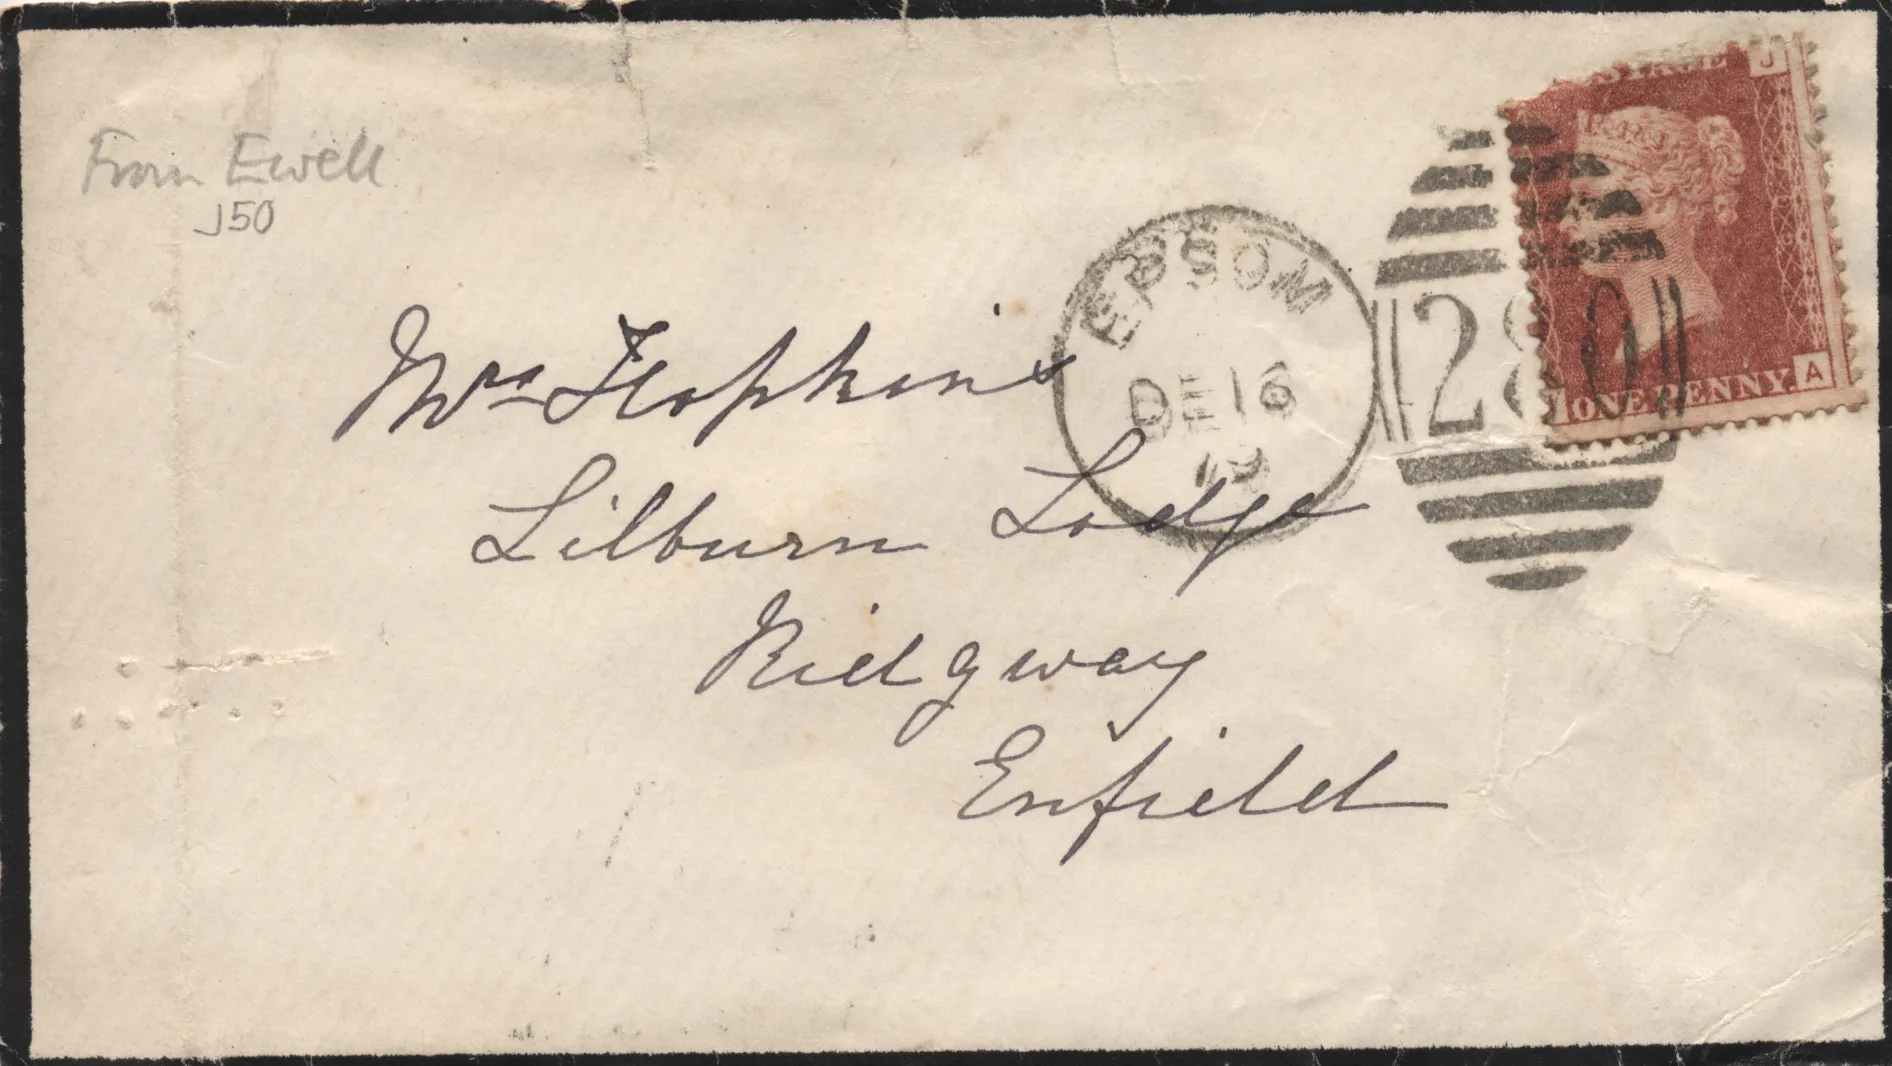 From Ewell
J50
Mrs Hopkins
Lilburn Lodge
Ridgway
Enfield
EPSOM
DE 16
79
280
POSTAGE
J
A
ONE PENNY